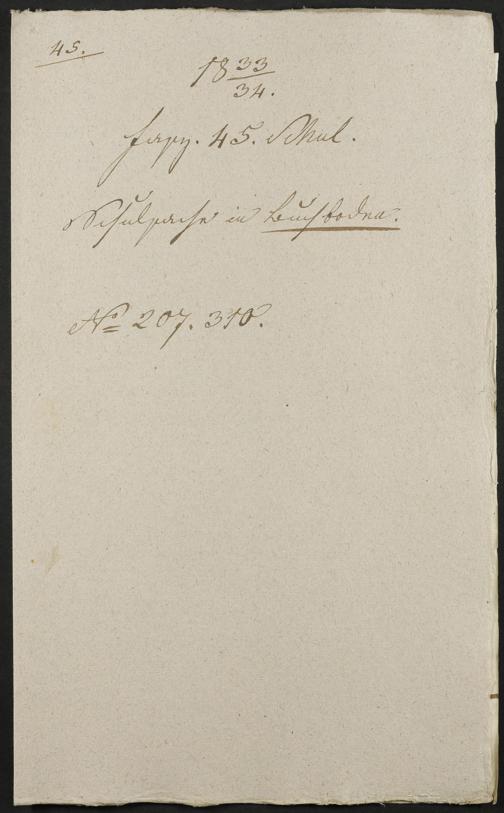 45.
18 33/34.
Fasz. 45. Schul.
Schulsache in Buchboden.
No 207. 310.